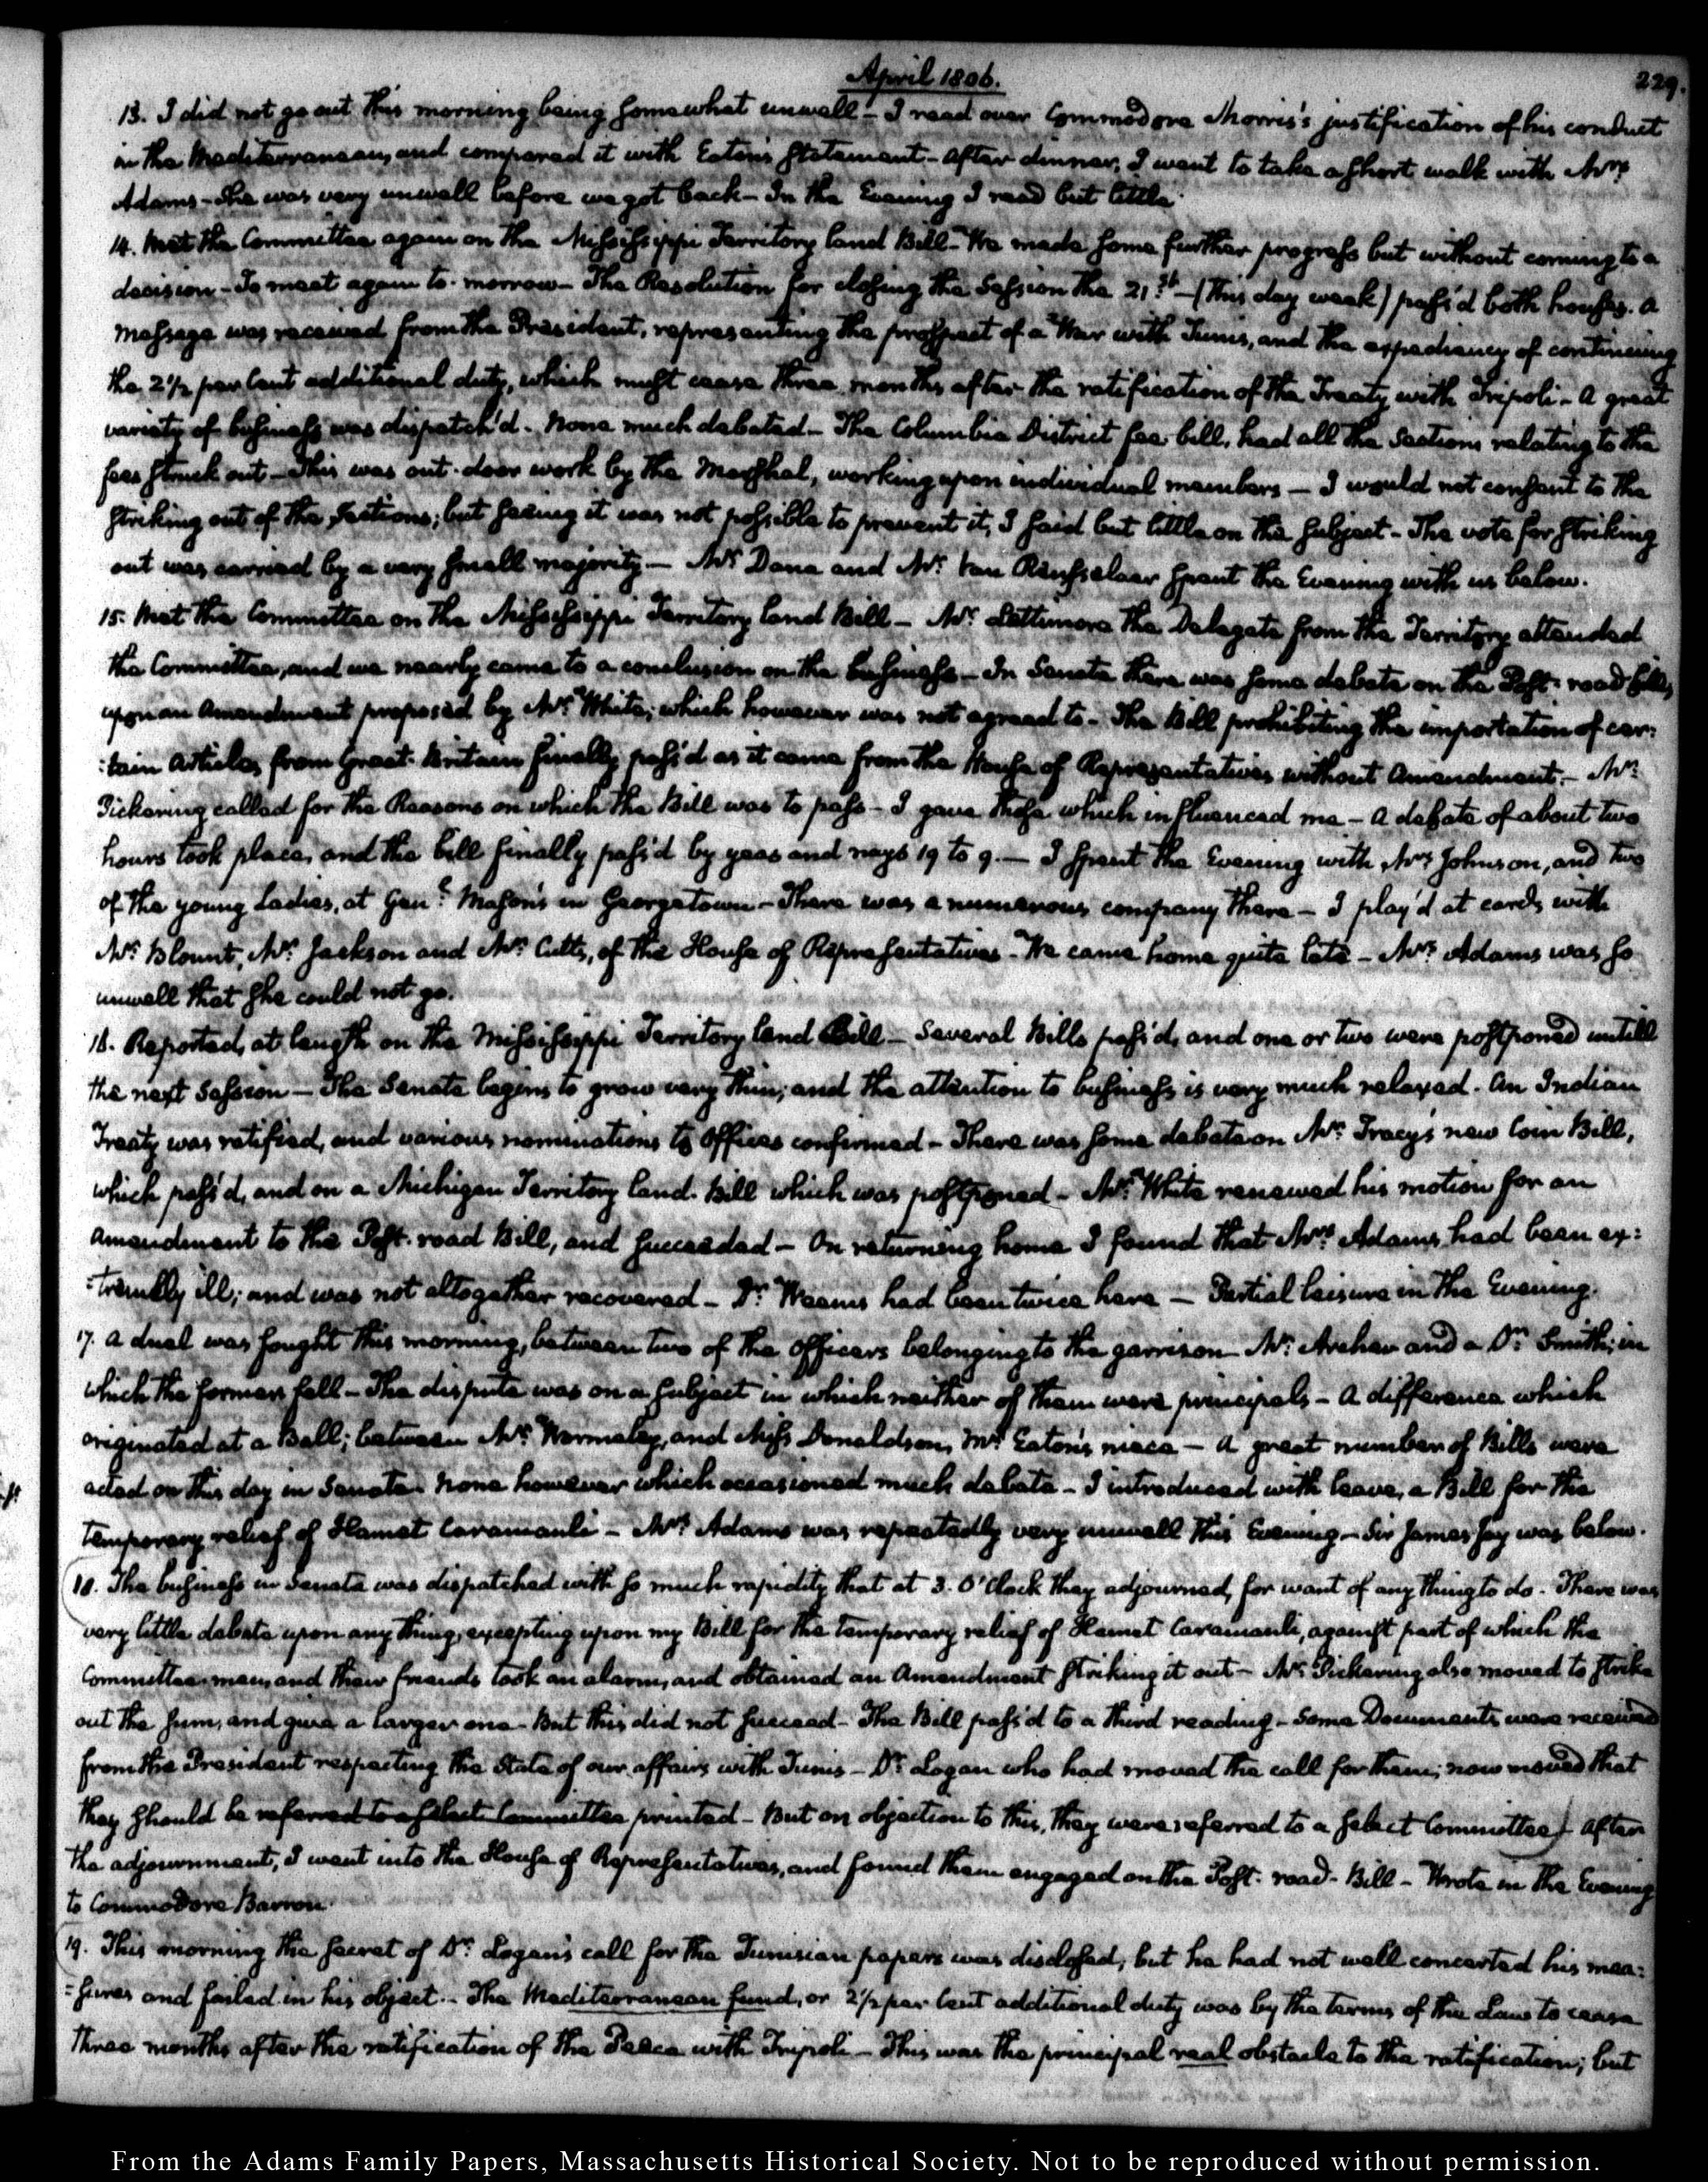 April 1806.
229.
13. I did not go out this morning being somewhat unwell - I read over Commodore Morris's justification of his conduct
in the Mediterranean, and compared it with Eaton's statement - After dinner, I went to take a short walk with Mrs
Adams - She was very unwell before we got back - In the Evening I read but little.
14. Met the Committee again on the Mississippi Territory land Bill - We made some further progress but without coming to a
decision - To meet again to-morrow - The Resolution for closing the Session the 21st - (this day week) pass'd both houses. A
Message was received from the President, representing the prospect of a War with Tunis, and the expediency of continuing
the 2 1/2 per Cent additional duty, which must cease three months after the ratification of the Treaty with Tripoli - A great
variety of business was dispatch'd - None much debated - The Columbia District fee bill, had all the Sections relating to the
fees struck out - This was out-door work by the Marshal, working upon individual members - I would not consent to the
striking out of the sections; but seeing it was not possible to prevent it, I said but little on the subject - The vote for striking
out was carried by a very small majority - Mr Dana and Mr Van Rensselaer spent the Evening with us below.
15. Met the Committee on the Mississippi Territory land Bill - Mr Lattimore the Delegate from the Territory attended
the Committee, and we nearly came to a conclusion on the business - In Senate there was some debate on the Post-road bill,
upon an Amendment proposed by Mr White; which however was not agreed to - The Bill prohibiting the importation of cer:
:tain Articles from Great-Britain finally pass'd as it came from the House of Representatives without Amendment - Mr
Pickering called for the Reasons on which the Bill was to pass - I gave those which influenced me - A debate of about two
hours took place, and the bill finally pass'd by yeas and nays 19 to 9. - I spent the Evening with Mrs Johnson, and two
of the young Ladies, at Genl Mason's in Georgetown - There was a numerous company there - I play'd at cards with
Mr Blount, Mr Jackson and Mr Cutts, of the House of Representatives - We came home quite late - Mrs Adams was so
unwell that she could not go.
16. Reported, at length on the Mississippi Territory land Bill - Several Bills pass'd, and one or two were postponed untill
the next Session - The Senate begins to grow very thin; and the attention to business is very much relaxed. An Indian
Treaty was ratified, and various nominations to Offices confirmed - There was some debate on Mr Tracy's new Coin Bill,
which pass'd, and on a Michigan Territory land Bill which was postponed - Mr White renewed his motion for an
Amendment to the Post-road Bill, and succeeded - On returning home I found that Mrs Adams had been ex:
:tremely ill; and was not altogether recovered - Dr Weems had been twice here - Partial leisure in the Evening.
17. A duel was fought this morning, between two of the Officers belonging to the garrison Mr Archer and a Dr Smith; in
which the former fell - The dispute was on a subject in which neither of them were principals - A difference which
originated at a Ball; between Mr Wormeley, and Miss Donaldson, Mr Eaton's niece - A great number of Bills were
acted on this day in Senate. None however which occasioned much debate - I introduced with leave, a Bill for the
temporary relief of Hamet Caramanli - Mrs Adams was repeatedly very unwell this Evening - Sir James Jay was below.
18. The business in Senate was dispatched with so much rapidity that at 3. O'Clock they adjourned, for want of any thing to do. There was
very little debate upon any thing, excepting upon my Bill for the temporary relief of Hamet Caramanli, against part of which the
Committee-men, and their friends took an alarm, and obtained an Amendment striking it out - Mr Pickering also moved to strike
out the sum, and give a larger one - But this did not succeed - The Bill pass'd to a third reading - Some Documents were received
from the President respecting the State of our affairs with Tunis - Dr Logan who had moved the call for them; now moved that
they should be referred to a select Committee printed - But on objection to this, they were referred to a select Committee) After
the adjournment, I went into the House of Representatives, and found them engaged on the Post-road-Bill - Wrote in the Evening
to Commodore Barron.
19. This morning the secret of Dr Logan's call for the Tunisian papers was disclosed; but he had not well concerted his mea:
:sures and failed in his object. - The Mediterranean fund, or 2 1/2 per Cent additional duty was by the terms of the Law to cease
three months after the ratification of the Peace with Tripoli - This was the principal real obstacle to the ratification; but
From the Adams Family Papers, Massachusetts Historical Society. Not to be reproduced without permission.